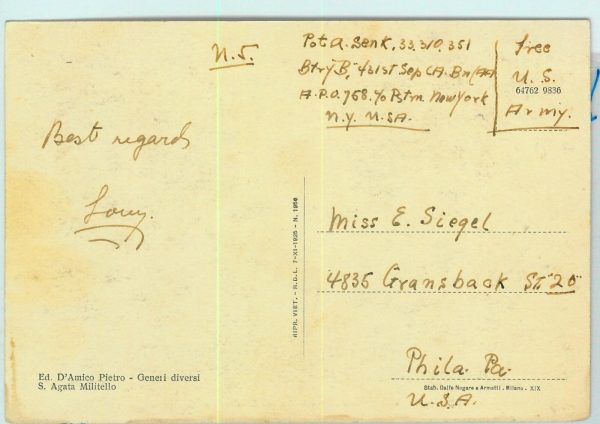 N.S.
Pvt A. Senk, 33,310,351
Btry B, 431st Sep CA. Bn (AA
A.P.O. 758, c/o Pstm New York
N.Y. U.S.A.
Free
U.S.
64762 9836
Army.
Best regards
Miss E. Siegel
4835 Gransback St. 20
Phila Pa.
U.S.A.
RIPR. VIET. - R.G.L. 7-XI-1925 - N. 1950
Ed. D'Amico Pietro - Generi diversi
S. Agata Militello
Stab. Dalle Nogare e Armetti - Milano - XIX